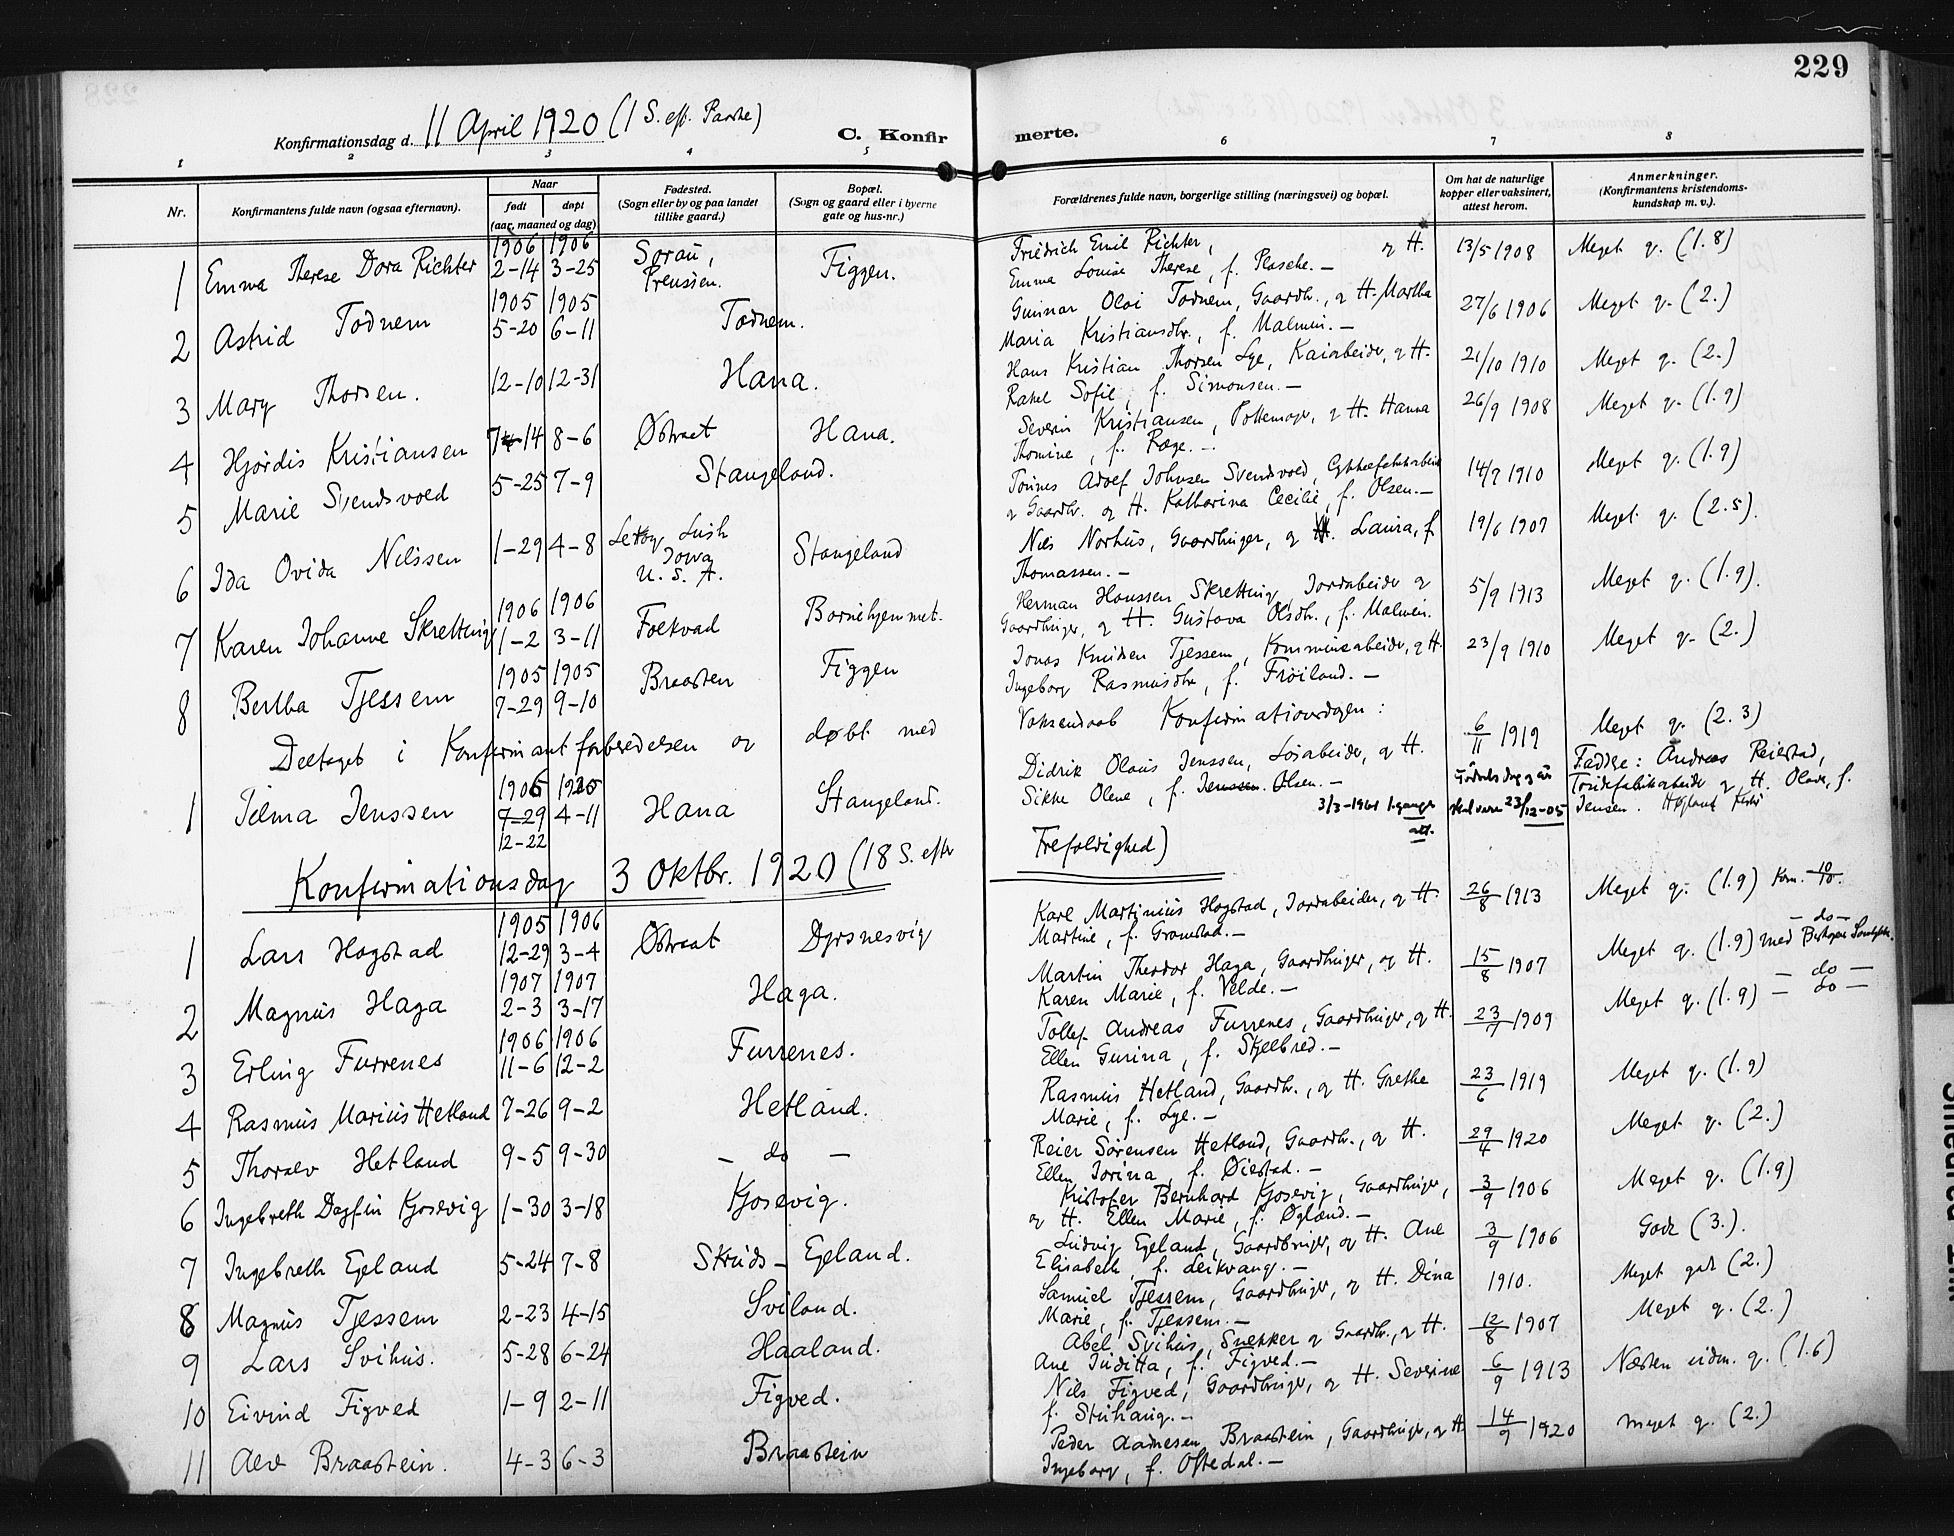 229
Konfirmationsdag d. 11 April 1920 (1 S. eft. Paaske)
C. Konfirmerte.
1 2 3 4 5 6 7 8
Nr.
Konfirmantens fulde navn (ogsaa efternavn).
Naar
født døpt
(aar, maaned og dag)
Fødested.
(Sogn eller by og paa landet
tillike gaard.)
Bopæl.
(Sogn og gaard eller i byerne
gate og hus-nr.)
Forældrenes fulde navn, borgerlige stilling (næringsvei) og bopæl.
Om hat de naturlige
kopper eller vaksinert,
attest herom.
Anmerkninger.
(Konfirmantens kristendoms-
kundskap m. v.).
1 Emma Therese Dora Richter 1906 2-14 1906 3-25 Sorau, Preussen. Figgen.
Friedrich Emil Richter, og H.
Emma Louise Therese, f. Plasche. –
13/5 1908 Meget g. (1.8)
2 Astrid Todnem 1905 5-20 1905 6-11 Todnem.
Gunnar Olai Todnem, Gaardbr., og H. Martha
Maria Kristiansdtr., f. Malmin. –
27/6 1906 Meget g. (2.)
3 Mary Thorsen. 12-10 12-31 Hana.
Hans Kristian Thorsen Lye, Kaiarbeider, og H.
Rakel Sofie, f. Simonsen. –
21/10 1910 Meget g. (2.)
4 Hjørdis Kristiansen 7-14 8-6 Østraat Hana.
Severin Kristiansen, Pottemager, og H. Hanna
Thomine, f. Rege. –
26/9 1908 Meget g. (1.9)
5 Marie Svendsvoed 5-25 7-9 Stangeland.
Tønnes Adolf Johnsen Svendsvoed, Cykkelfabrikarbeid
og Gaardbr. og H. Katharina Cecilie, f. Olsen. –
14/9 1910 Meget g. (1.9)
6 Ida Ovida Nilssen 1-29 4-8 Iowa U. S. A. Stangeland
Nils Norhus, Gaardbruger, og H. Laura, f.
Thomassen. –
19/6 1907 Meget g. (2.5).
7 Karen Johanne Skretting 1906 1-2 1906 3-11 Folkvad Børnehjemmet.
Herman Hanssen Skretting, Jordarbeider og
Gaardbruger, og H. Gustava Olsdtr., f. Malmin.
5/9 1913 Meget g. (1.9).
8 Bertha Tjessem 1905 7-29 1905 9-10 Braasten Figgen
Jonas Knudsen Tjessem, Kommunearbeider, og H.
Ingeborg Rasmusdtr., f. Frøiland. –
23/9 1910 Meget g. (2.)
Deltaget i Konfirmantforberedelsen og døbt med
Voksendaab Konfirmationsdagen:
1 Telma Jenssen 1905 7-29 12-22 1920 4-11 Hana Stangeland.
Didrik Olaus Jenssen, Løsarbeider, og H.
Sikke Olene, f. Jenssen. Olsen. –
3/3-1961 1.gangs att.
6/11 1919
Fødselsdag og år skal være 23/12-05
Meget g. (2.3)
Fadder: Andreas Reiestad,
og H. Olava, f.
Jensen.
Konfirmationsdag 3 Oktbr. 1920 (18 S. efter
Trefoldighed)
1 Lars Hogstad 1905 12-29 1906 3-4 Østraat Dyrsnesvig
Karl Martinius Hogstad, Jordarbeider, og H.
Martine, f. Gramstad. –
26/8 1913 Meget g. (1.9) Kom. 10/10.
2 Magnus Haga 1907 2-3 1907 3-17 Haga.
Martin Theodor Haga, Gaardbruger, og H.
Karen Marie, f. Velde. –
15/8 1907 Meget g. (1.9) – do – med Biskopens Samtykke.
3 Erling Furrenes 1906 11-6 1906 12-2 Furrenes.
Tollef Andreas Furrenes, Gaardbruger, og H.
Ellen Gurina, f. Skjelbred. –
23/9 1909 Meget g. (1.9) – do –
– do –
4 Rasmus Marius Hetland 7-26 9-2 Hetland.
Rasmus Hetland, Gaardbr., og H. Grethe
Marie, f. Lye. –
23/6 1919 Meget g. (1.9)
5 Thoralv Hetland 9-5 9-30 – do –
Reier Sørensen Hetland, Gaardbr., og H.
Ellen Torina, f. Øiestad. –
29/4 1920 Meget g. (2.)
6 Ingebreth Dagfin Kjosevig 1-30 3-18 Kjosevig.
Kristofer Bernhard Kjosevig, Gaardbruger,
og H. Ellen Marie, f. Øglænd. –
3/9 1906 Meget g. (1.9)
7 Ingebreth Egeland 5-24 7-8 Skruds- Egeland.
Ludvig Egeland, Gaardbruger, og H. Ane
Elisabeth, f. Leikvang. –
3/9 1906 Godt (3.).
8 Magnus Tjessem 2-23 4-15 Sviland.
Samuel Tjessem, Gaardbruger, og H. Dina
Marie, f. Tjessem. –
1910. Meget godt (2.)
9 Lars Svihus. 5-28 6-24 Haaland.
Abel Svihus, Snekker og Gaardbr., og H.
Ane Juditta, f. Figved. –
12/8 1907 Meget g. (2.)
10 Eivind Figved 1-9 2-11 Figved.
Nils Figved, Gaardbruger, og H. Severine
f. Stuhaug. –
6/9 1913 Næsten udm. g. (1.6)
11 Alv Braastein. 4-3 6-3 Braastein
Peder Aadnesen Braastein, Gaardbruger, og H.
Ingeborg, f. Oftedal. –
14/9 1920 meget g. (2.)